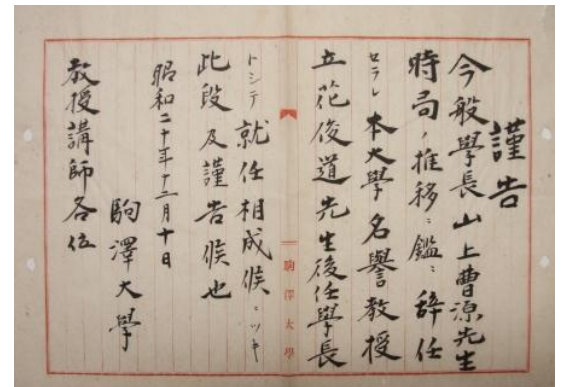 謹告
今般學長山上曹源先生
時局ノ推移ニ鑑ミ辞任
セラレ本大學名譽教授
立花俊道先生後任學長
トシテ就任相成候ニツキ
此段及謹告候也
昭和二十年十二月十日
駒澤大學
教授講師各位
駒澤大學